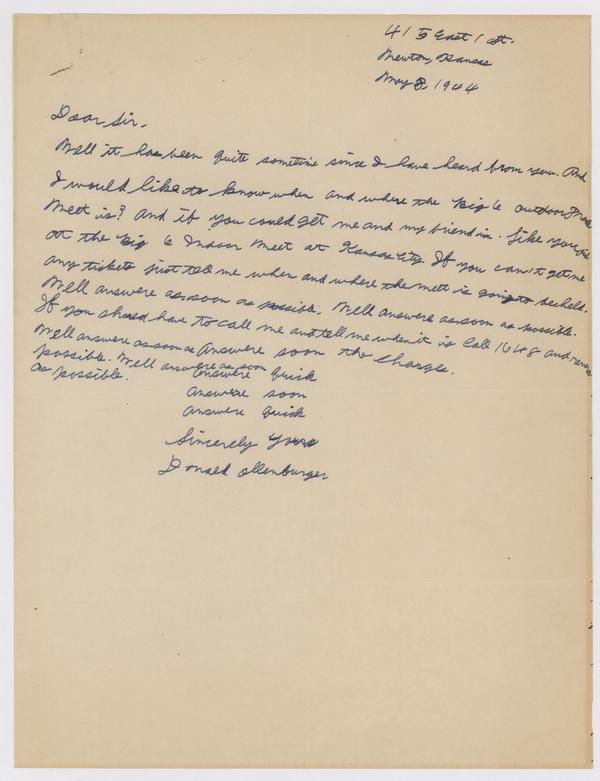 415 East 1 st.
Newton, Kansas
May 8, 1944
Dear Sir,
Well it has been quite sometime since I have heard from you. And
I would like to know when and where the Big 6 outdoor Track
Meet is? And if you could get me and my friend in. Like you did
at the Big 6 Indoor Meet at Kansas City. If you can't get me
any tickets just tell me when and where the meet is going to be held.
Well answere as soon as possible. Well answere as soon as possible.
If you should have to call me and tell me when it is Call 1648 and reverse
the Charge.
Well answere as soon as Answere soon
possible. Well answere as soon
as possible.
Answere Quick
Answere soon
Answere Quick
Sincerely Yours
Donald Ollenburger